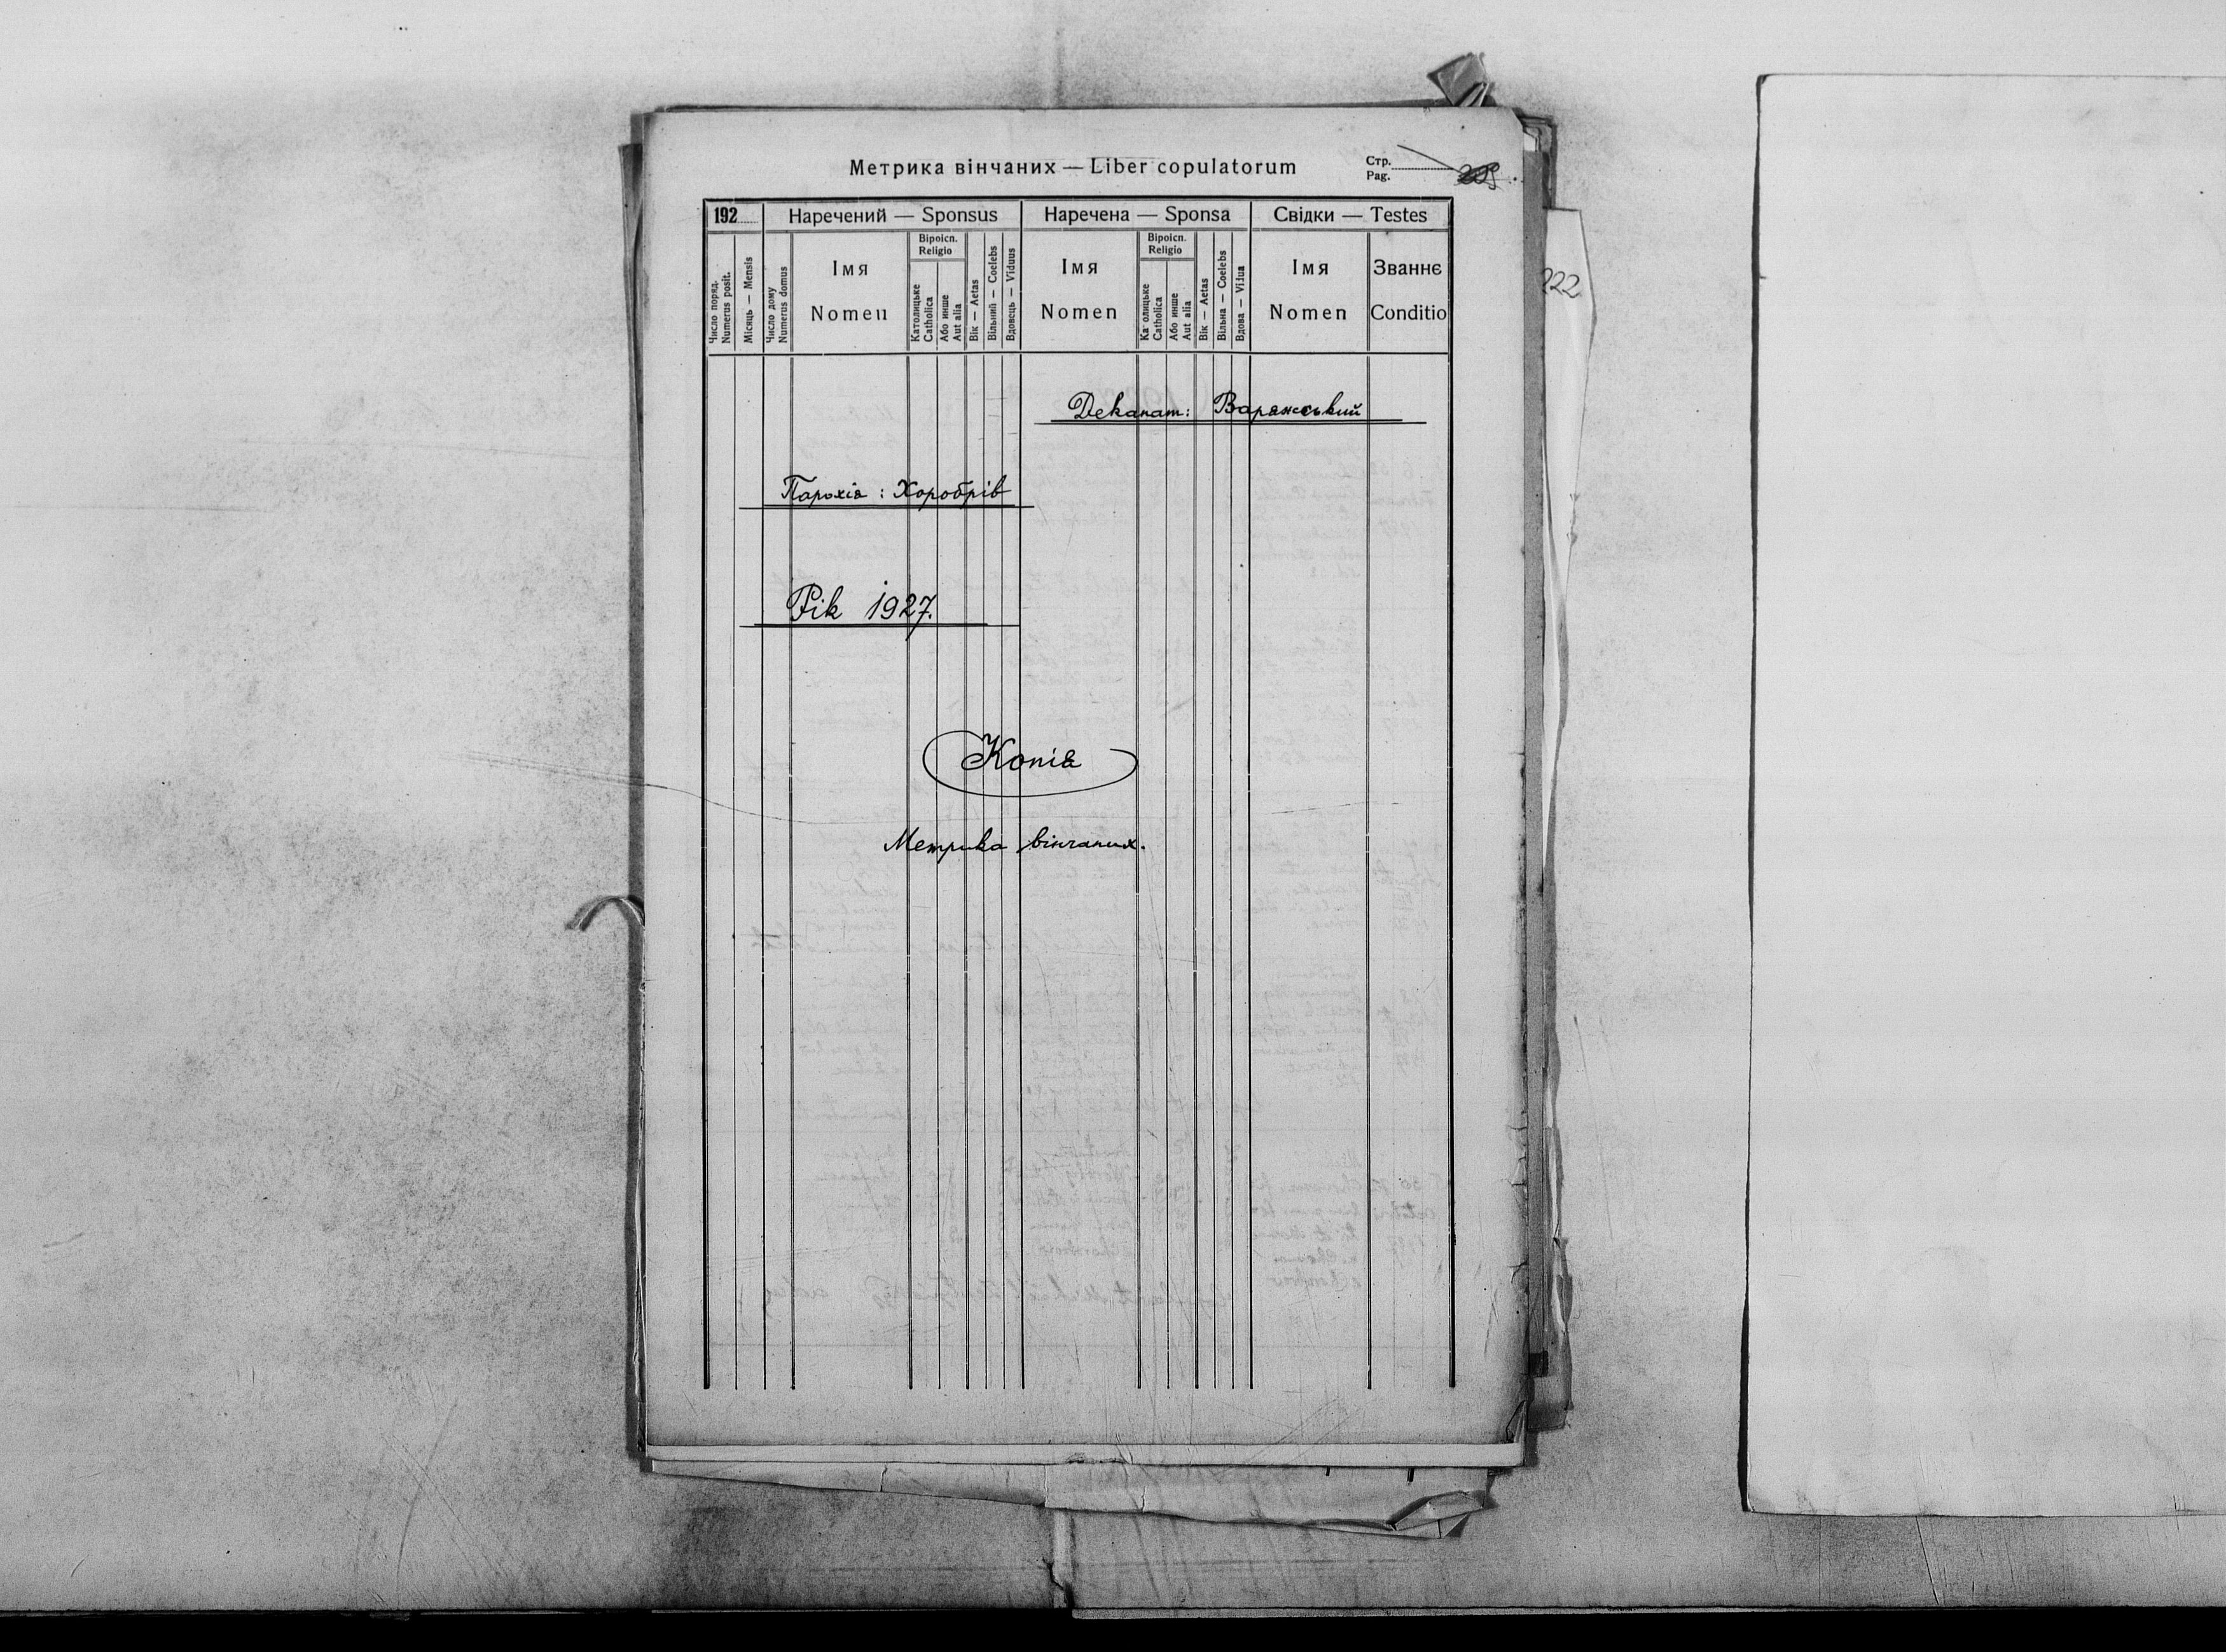 Метрика вінчаних — Liber copulatorum
Стр.
Pag.
192
Наречений — Sponsus
Наречена — Sponsa
Свідки — Testes
Число поряд.
Numerus posit.
Місяць — Mensis
Число дому
Numerus domus
Імя
Nomen
Віроісп.
Religio
Католицьке
Catholica
Або инше
Aut alia
Вік — Aetas
Вільний — Coelebs
Вдовець — Viduus
Імя
Nomen
Віроісп.
Religio
Ка олицьке
Catholica
Або инше
Aut alia
Вік — Aetas
Вільна — Coelebs
Вдова — Vidua
Імя
Nomen
Званнє
Conditio
222
Деканат: Варяжський
Парохія : Хоробрів
Рік 1927.
Копія
Метрика вінчаних.